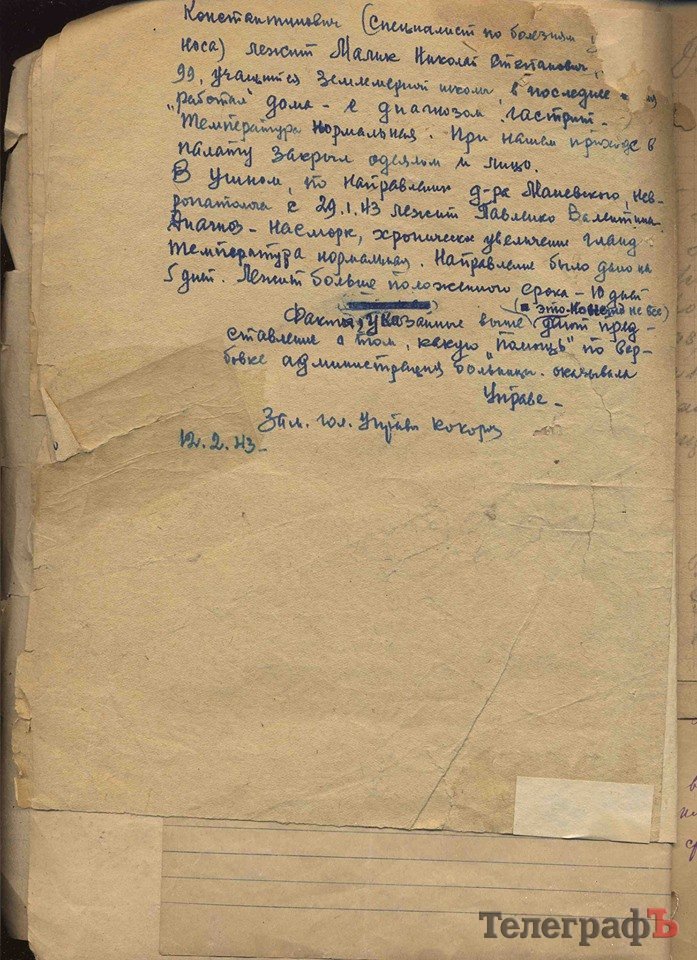 Константинович (специалист по болезням
носа) лежит Малик Николай Степанович,
99, учащийся землемерной школы, в последнее
"работал" дома - с диагнозом гастрит.
Температура нормальная. При нашем приходе в
палату закрыл одеялом и лицо.
В Ушном, по направлению д-ра Маневского, нев-
ропатолога с 29.1.43 лежит Павленко Валентина.
Диагноз - насморк, хроническое увеличение гланд
Температура нормальная. Направление было дано на
5 дней. Лежит больше положенного срока - 10 дней
(а это не все)
Факты, указанные выше дают пред-
ставление о том, какую "помощь" по вер-
бовке администрация больницы оказывала
Управе -
Зам. гол. Управи
12.2.43 -
ТелеграфЪ